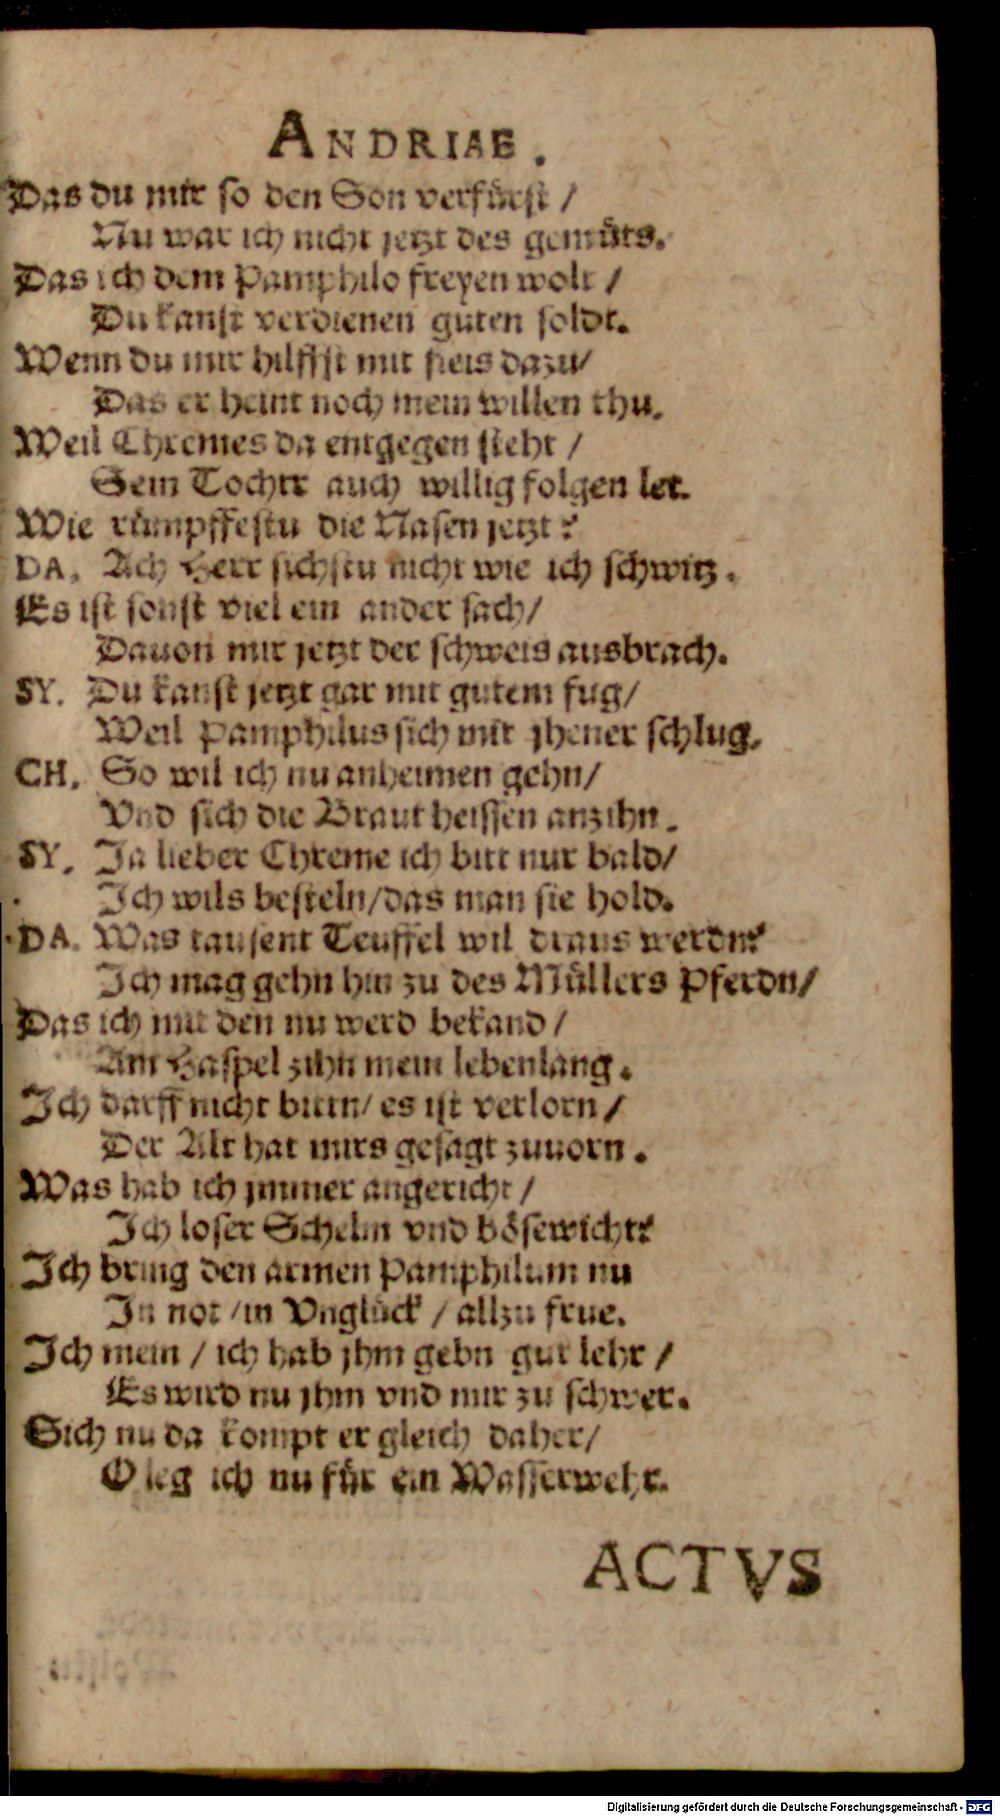 ANDRIAE.
Das du mir so den Son verfürst /
Nu war ich nicht jetzt des gemüts.
Das ich dem Pamphilo freyen wolt /
Du kanst verdienen guten soldt.
Wenn du mir hilffst mit fleis dazu /
Das er heint noch mein willen thu.
Weil Chremes da entgegen steht /
Sein Tochtr auch willig folgen let.
Wie rümpffestu die Nasen jetzt?
DA. Ach Herr sichstu nicht wie ich schwitz.
Es ist sonst viel ein ander sach /
Dauon mir jetzt der schweis ausbrach.
SY. Du kanst jetzt gar mit gutem fug /
Weil Pamphilus sich mit jhener schlug.
CH. So wil ich nu anheimen gehn /
Vnd sich die Braut heissen anzihn.
SY. Ja lieber Chreme ich bitt nur bald /
Ich wils besteln / das man sie hold.
DA. Was tausent Teuffel wil draus werdn?
Ich mag gehn hin zu des Müllers Pferdn /
Das ich mit den nu werd bekand /
Am Haspel zihn mein lebenlang.
Ich darff nicht bittn / es ist verlorn /
Der Alt hat mirs gesagt zuuorn.
Was hab ich jmmer angericht /
Ich loser Schelm vnd bösewicht?
Ich bring den armen Pamphilum nu
In not / in Vnglück / allzu frue.
Ich mein / ich hab jhm gebn gut lehr /
Es wird nu jhm vnd mir zu schwer.
Sich nu da kompt er gleich daher /
O leg ich nu für ein Wasserwehr.
ACTVS
Digitalisierung gefördert durch die Deutsche Forschungsgemeinschaft - DFG